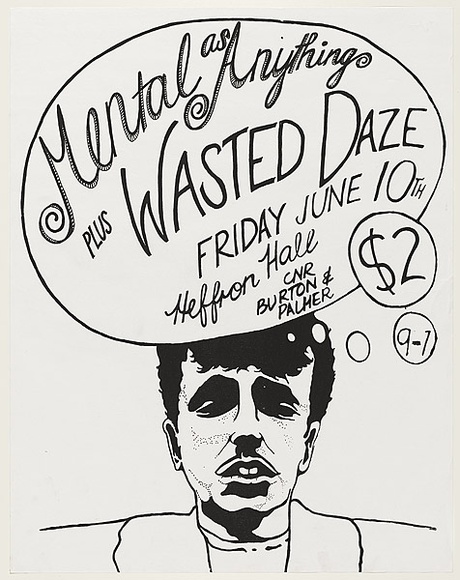 Mental as Anything
PLUS WASTED DAZE
FRIDAY JUNE 10TH
Heffron Hall
CNR
BURTON &
PALMER
$2
9-1